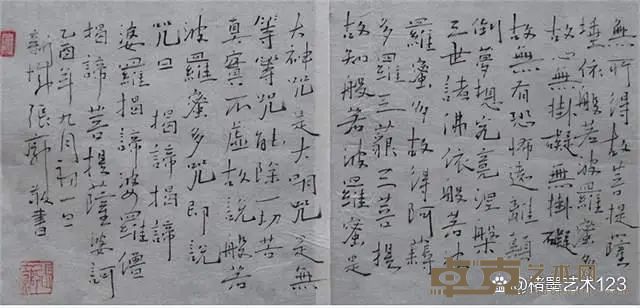 無所得故菩提薩
埵依般若波羅蜜多
故心無掛礙無掛礙
故無有恐怖遠離顛
倒夢想究竟涅槃
三世諸佛依般若波
羅蜜多故得阿耨
多羅三藐三菩提
故知般若波羅蜜是
大神咒是大明咒是無
等等咒能除一切苦
真實不虛故說般若
波羅蜜多咒即說
咒曰 揭諦揭諦
婆羅揭諦婆羅僧
揭諦菩提薩婆訶
乙酉年九月初一日
張 敬書
卓克艺术网
楮墨艺术123